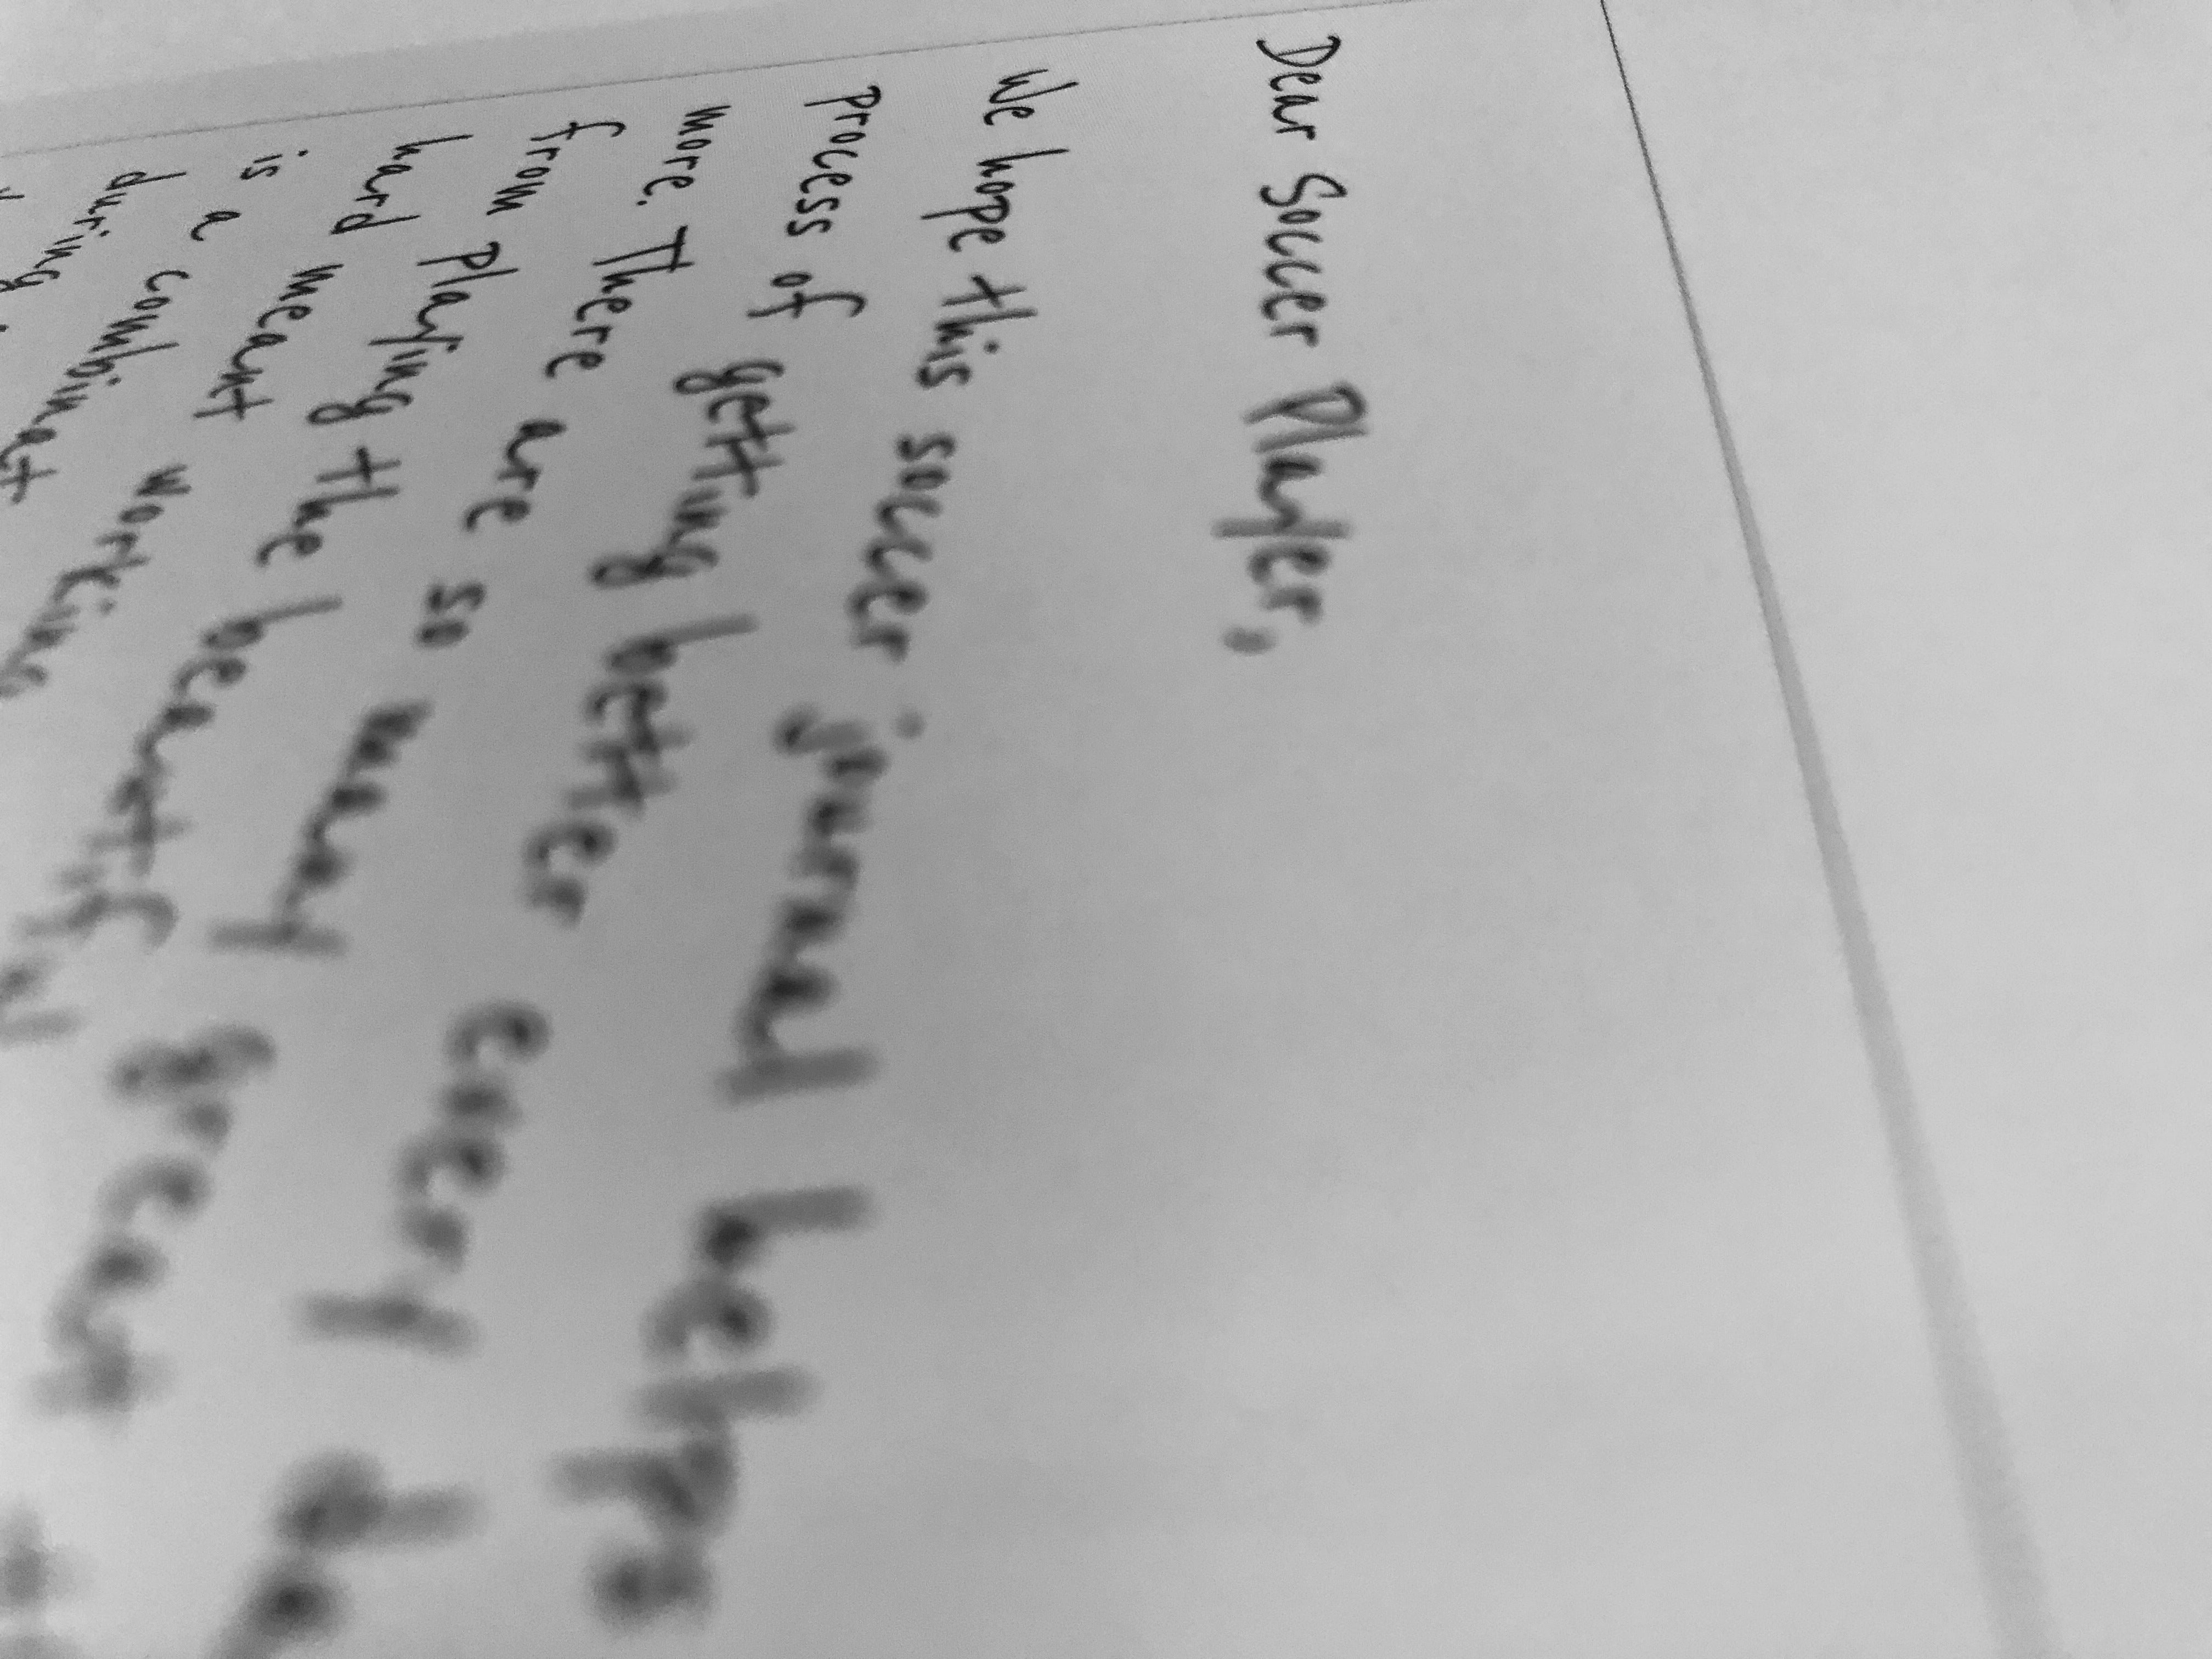 Dear Soccer Player,
We hope this soccer journal helps
process of getting better every
more. There are so many great
from playing the beautiful
hard meant working
is a combinat
during